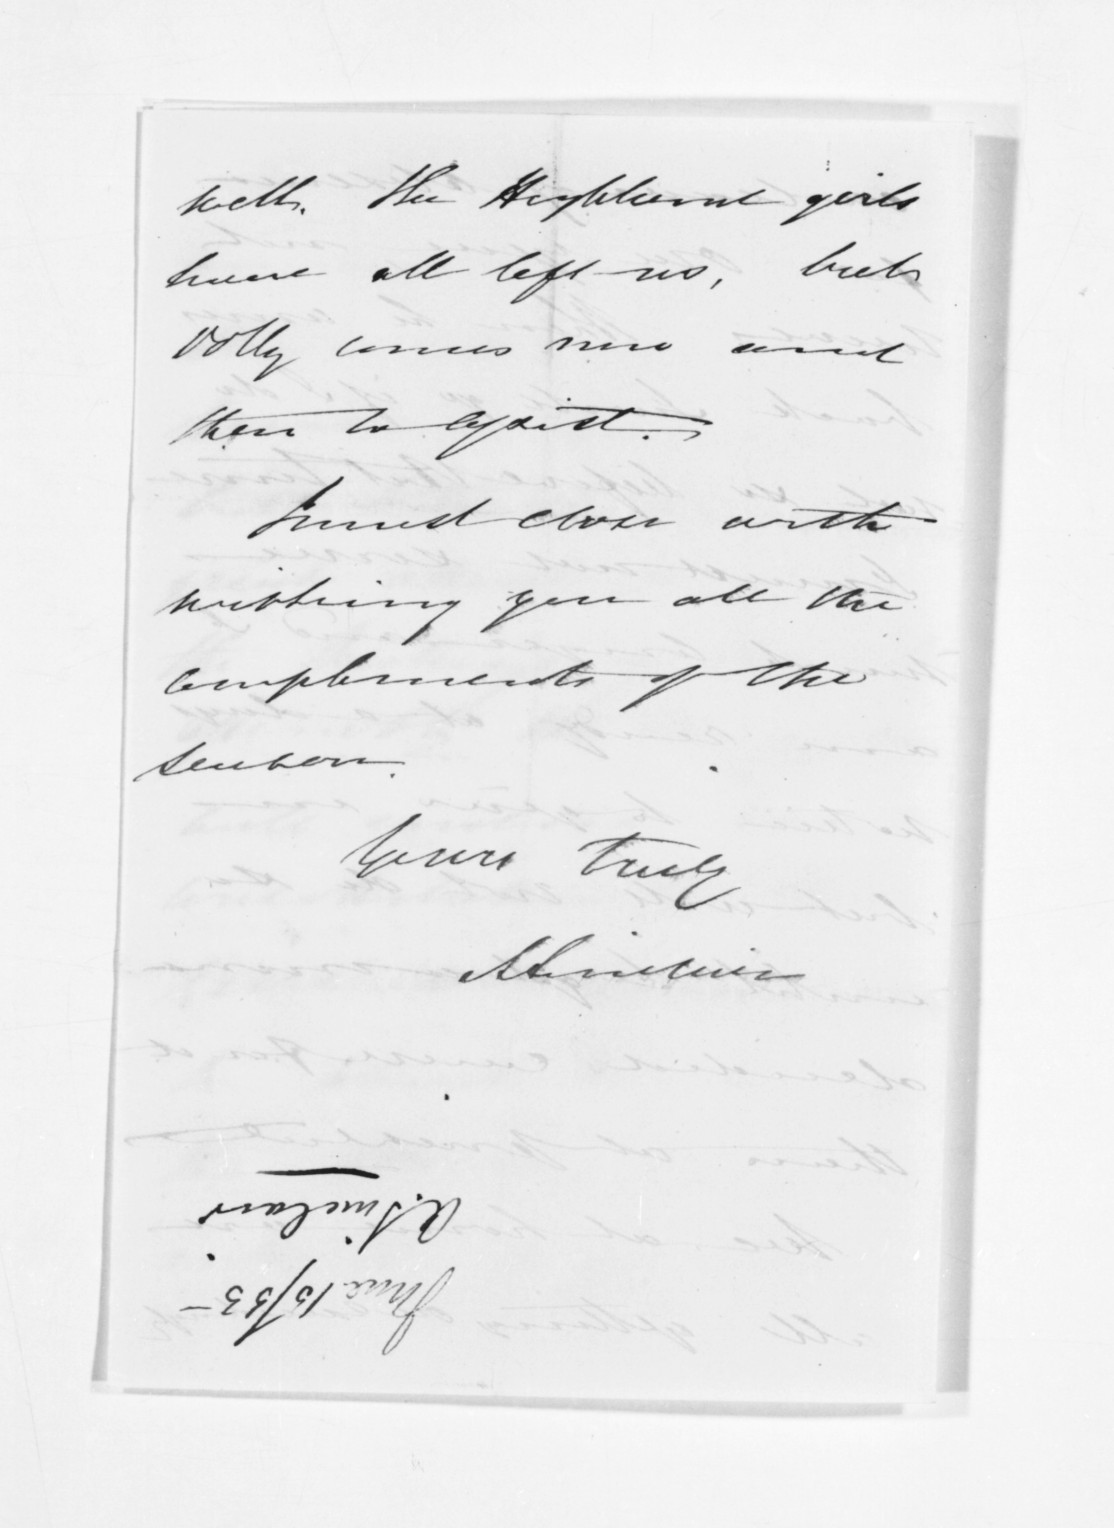 well. The Highland girls
have all left us, but
Dolly comes now and
then to assist.
I must close with
wishing you all the
compliments of the
season.
Yours truly
A Sinclair
A. Sinclair